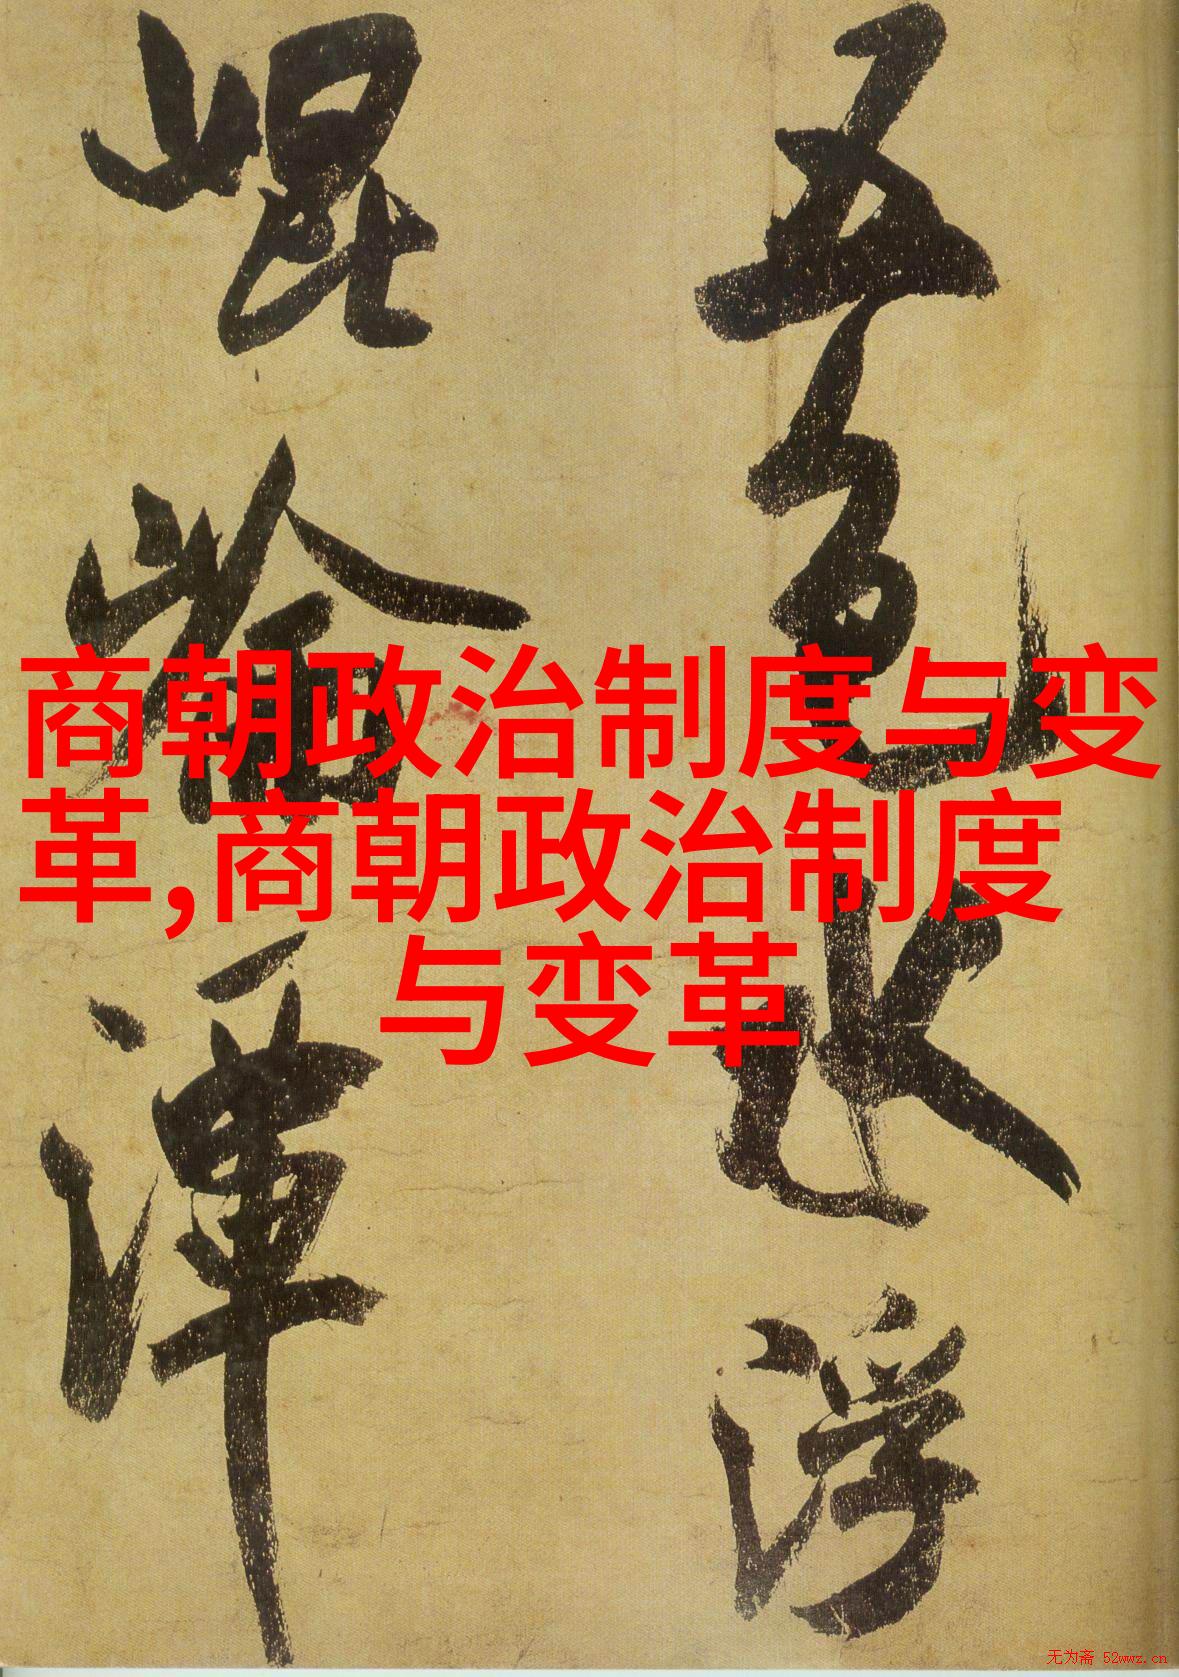 五色水浮
崐崘潭
商朝政治制度与变
革,商朝政治制度
与变革
无为斋 52wwz.cn